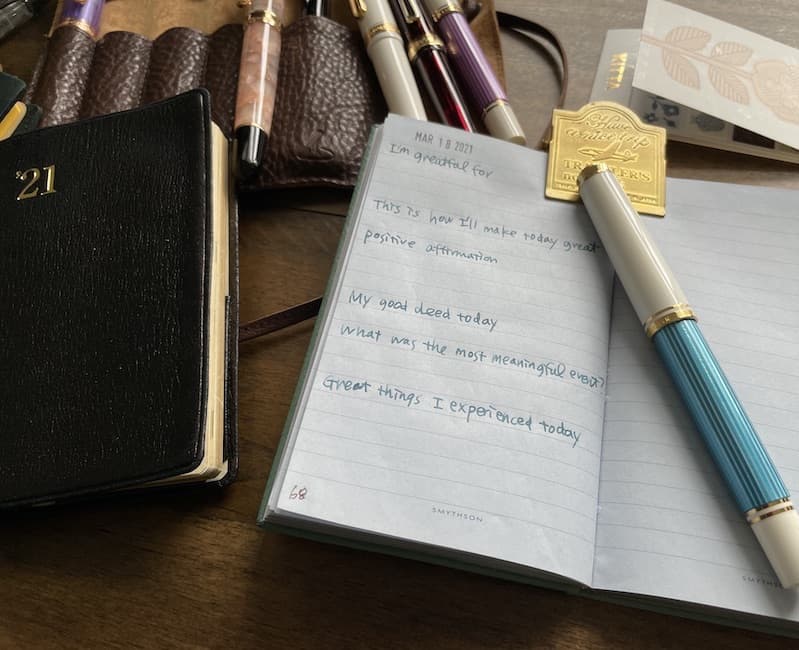 '21
MAR 18 2021
I'm greatful for
This is how I'll make today great
positive affirmation
My good deed today
What was the most meaningful event?
Great things I experienced today
68
SMYTHSON
Have
a nice trip
TRAVELER'S
KITTA
SMYTHS